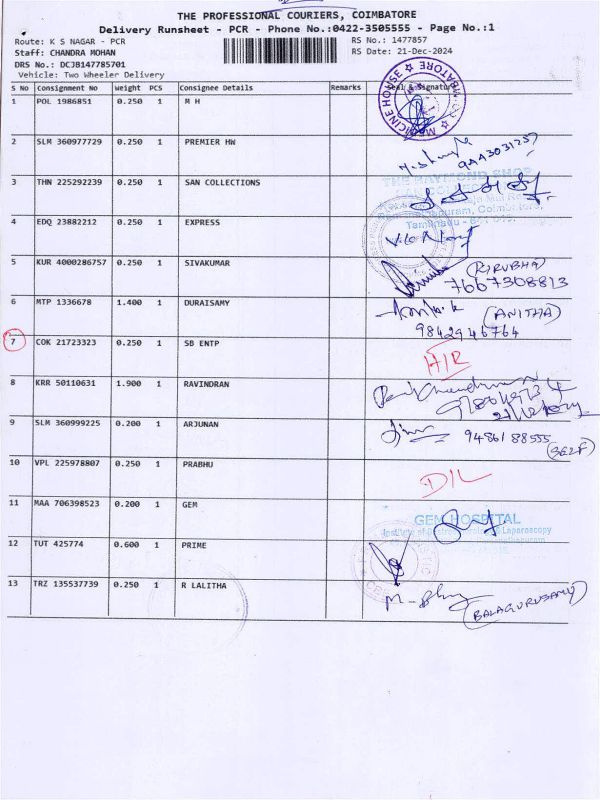 THE PROFESSIONAL COURIERS, COIMBATORE
Delivery Runsheet - PCR - Phone No.:0422-3505555 - Page No.:1
Route: K S NAGAR - PCR RS No.: 1477857
Staff: CHANDRA MOHAN RS Date: 21-Dec-2024
DRS No.: DCJB147785701
Vehicle: Two Wheeler Delivery
S No Consignment No Weight PCS Consignee Details Remarks Seal & Signature
1 POL 1986851 0.250 1 M H
MEDICINE HOUSE
2 SLM 360977729 0.250 1 PREMIER HW
9443031257
3 THN 225292239 0.250 1 SAN COLLECTIONS
THE RAYMOND SHOP
Coimbatore,
4 EDQ 23882212 0.250 1 EXPRESS
Tamilnadu
5 KUR 4000286757 0.250 1 SIVAKUMAR (KIRUBHA)
7667308813
6 MTP 1336678 1.400 1 DURAISAMY (ANITHA)
9842946764
7 COK 21723323 0.250 1 SB ENTP
H/R
8 KRR 50110631 1.900 1 RAVINDRAN
9 SLM 360999225 0.200 1 ARJUNAN
9486188555 (SELF)
10 VPL 225978807 0.250 1 PRABHU
D/L
11 MAA 706398523 0.200 1 GEM
GEM HOSPITAL
Laparoscopy
12 TUT 425774 0.600 1 PRIME
13 TRZ 135537739 0.250 1 R LALITHA
(BALAGURUSAMY)